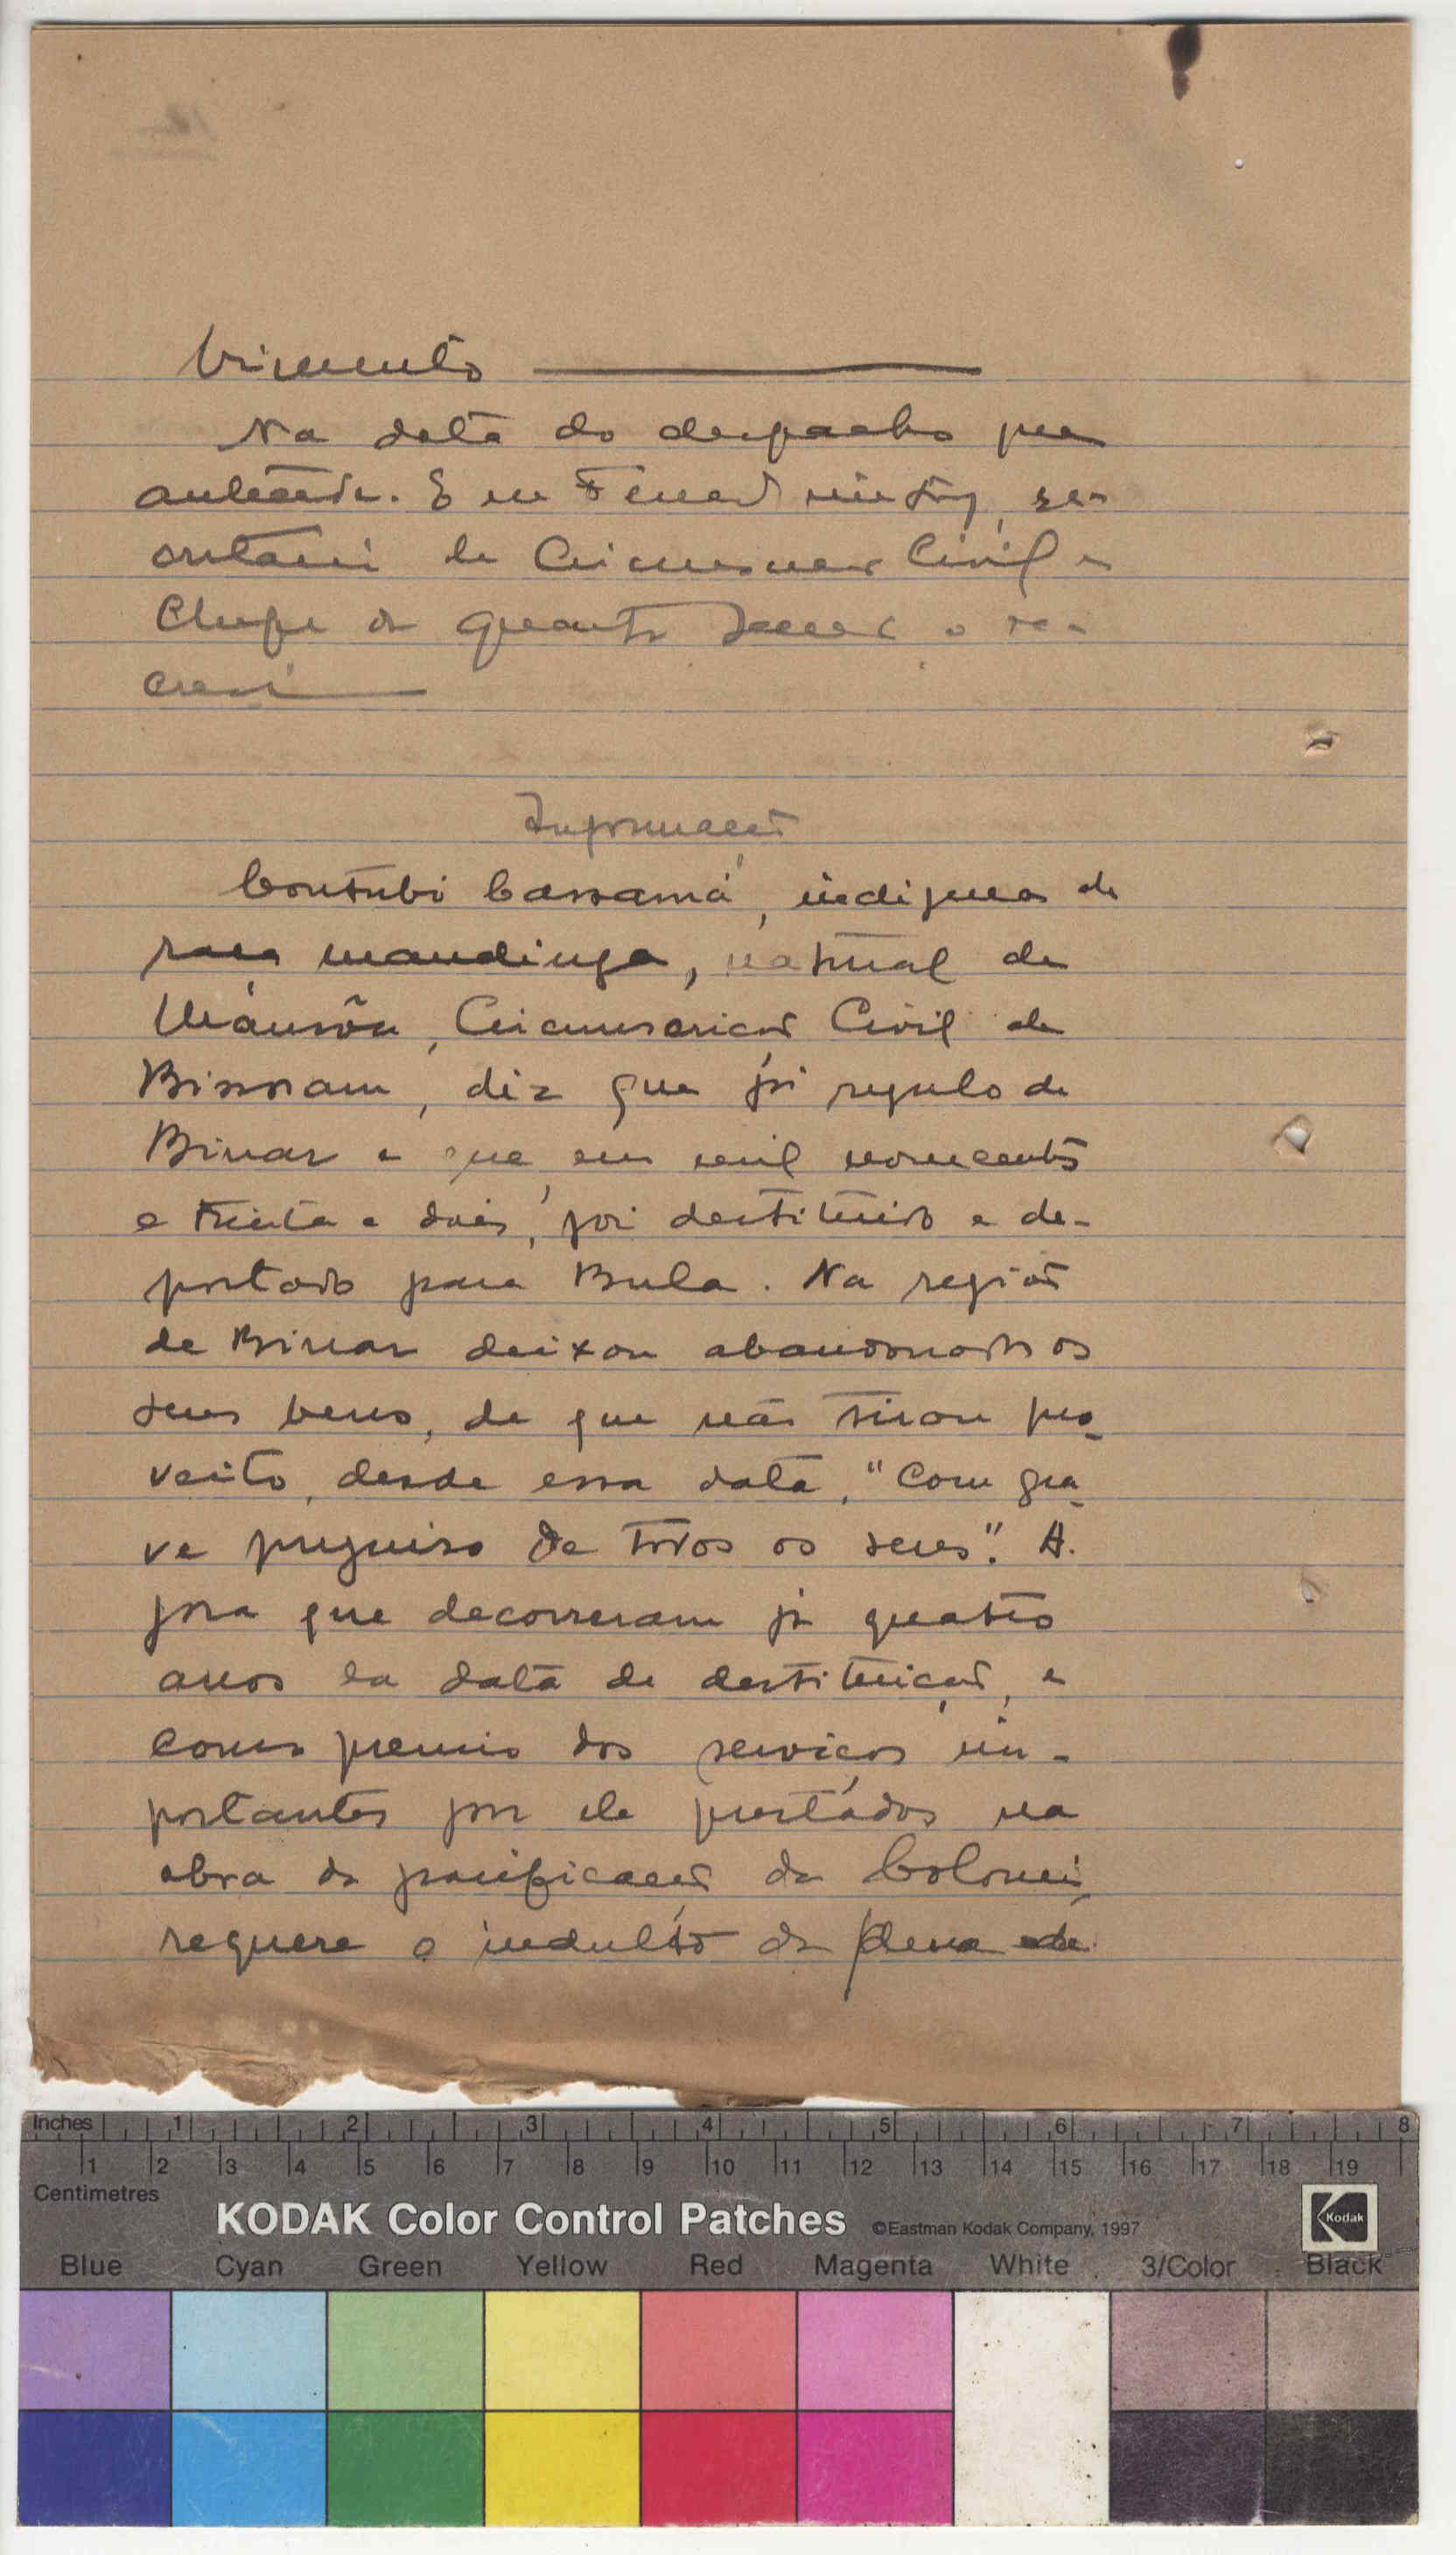 vimento
Na data do despacho
antecede. E eu
Circunscrição Civil
Chefe o
crevi
Informação
Contubo Cassamá, indigena de
raça mandinga, natural de
Mansôa, Circunscrição Civil de
Bissau, diz que foi regulo de
Binar e que, em mil novecentos
e trinta e dois, foi destituido e de-
portado para Bula. Na região
de Binar deixou abandonados os
seus bens, de que não tirou pro-
veito, desde essa data, "com gra-
ve prejuiso de todos os seus". A-
gora que decorreram já quatro
anos da data da destituição, e
como premio dos serviços im-
portantes por ele prestados na
obra da pacificação da Colonia,
requere o indulto da pena de
Inches 1 2 3 4 5 6 7 8
1 2 3 4 5 6 7 8 9 10 11 12 13 14 15 16 17 18 19
Centimetres
KODAK Color Control Patches ©Eastman Kodak Company, 1997 Kodak
Blue Cyan Green Yellow Red Magenta White 3/Color Black